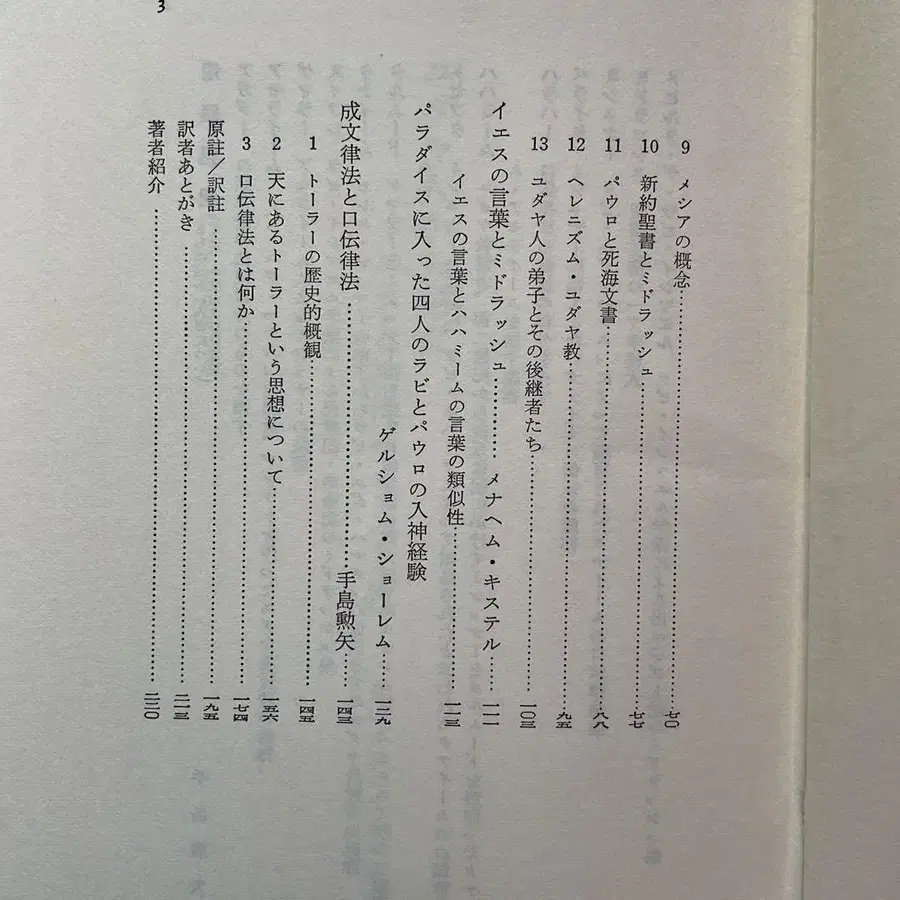 3
9 メシアの概念……七〇
10 新約聖書とミドラッシュ……七七
11 パウロと死海文書……八八
12 ヘレニズム・ユダヤ教……九五
13 ユダヤ人の弟子とその後継者たち……一〇三
イエスの言葉とミドラッシュ……メナヘム・キステル……一一一
イエスの言葉とハハミームの言葉の類似性……一一三
パラダイスに入った四人のラビとパウロの入神経験
ゲルショム・ショーレム……一三九
成文律法と口伝律法……手島勲矢……一四三
1 トーラーの歴史的概観……一四五
2 天にあるトーラーという思想について……一五六
3 口伝律法とは何か……一七四
原註／訳註……一九五
訳者あとがき……二一三
著者紹介……二二〇